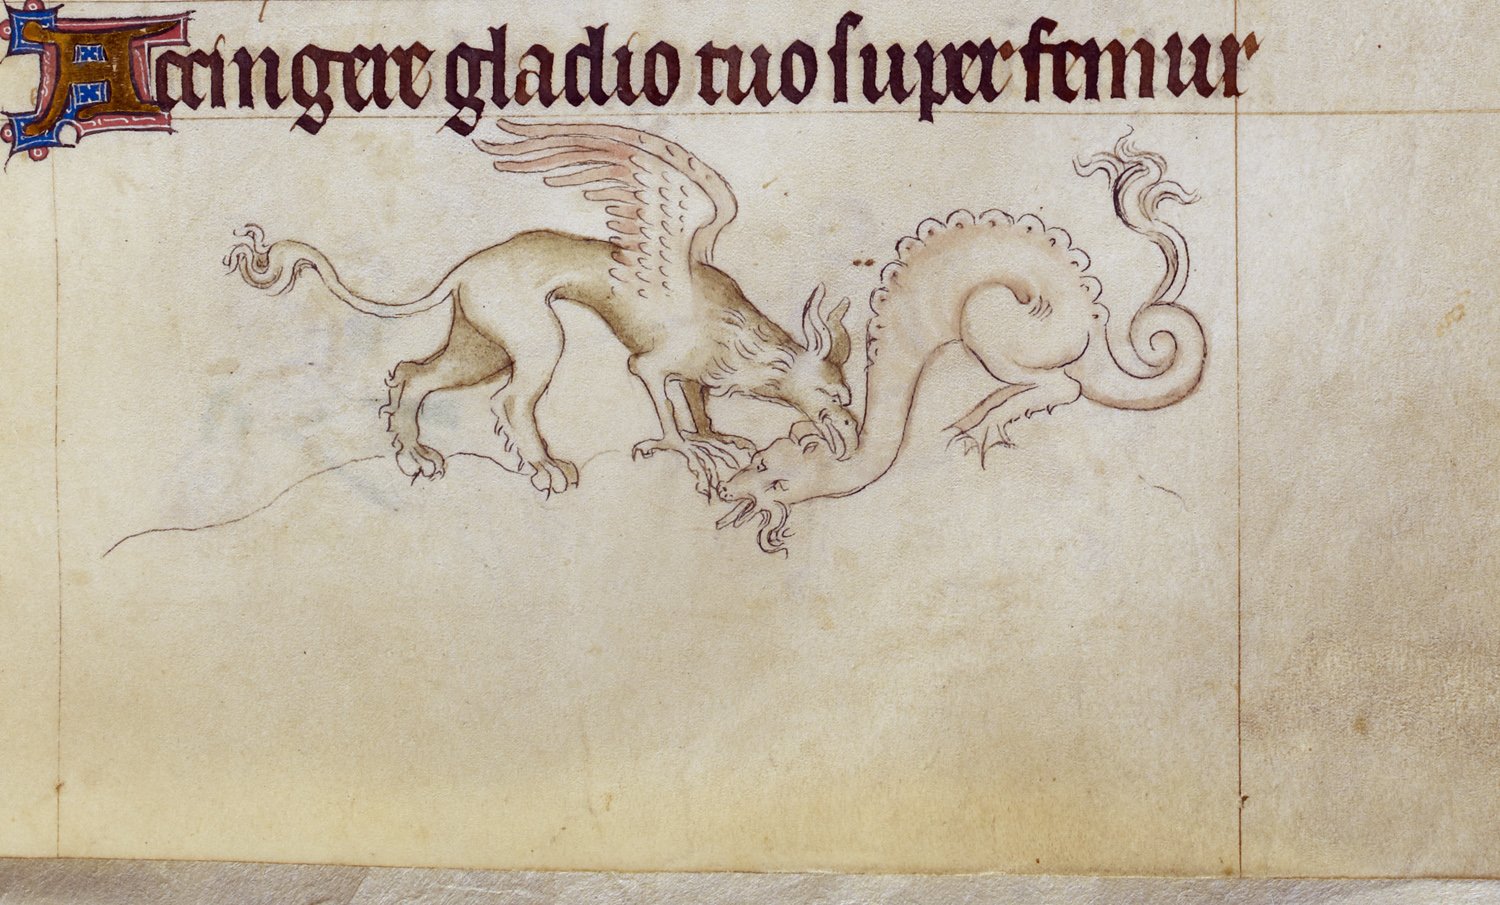 Accingere gladio tuo super femur